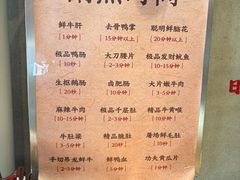 鲜牛肝
去骨鸭掌
聪明鲜脑花
[1分钟]
[15分钟以上]
[20分钟以上]
极品鸭肠
大刀腰片
极品发财鱿鱼
[10秒]
[2-3分钟]
[15分钟以上]
生抠鹅肠
卤肥肠
大片嫩牛肉
[20秒]
[10分钟]
[3分钟]
麻辣牛肉
极品千层肚
精品牛黄喉
[10秒]
[10秒]
牛肚梁
精品脆肚
屠场鲜毛肚
[20秒]
[10秒]
手切吊龙鲜牛
鲜鸭血
功夫黄瓜片
[2-3分钟]
[5分钟]
[1分钟]